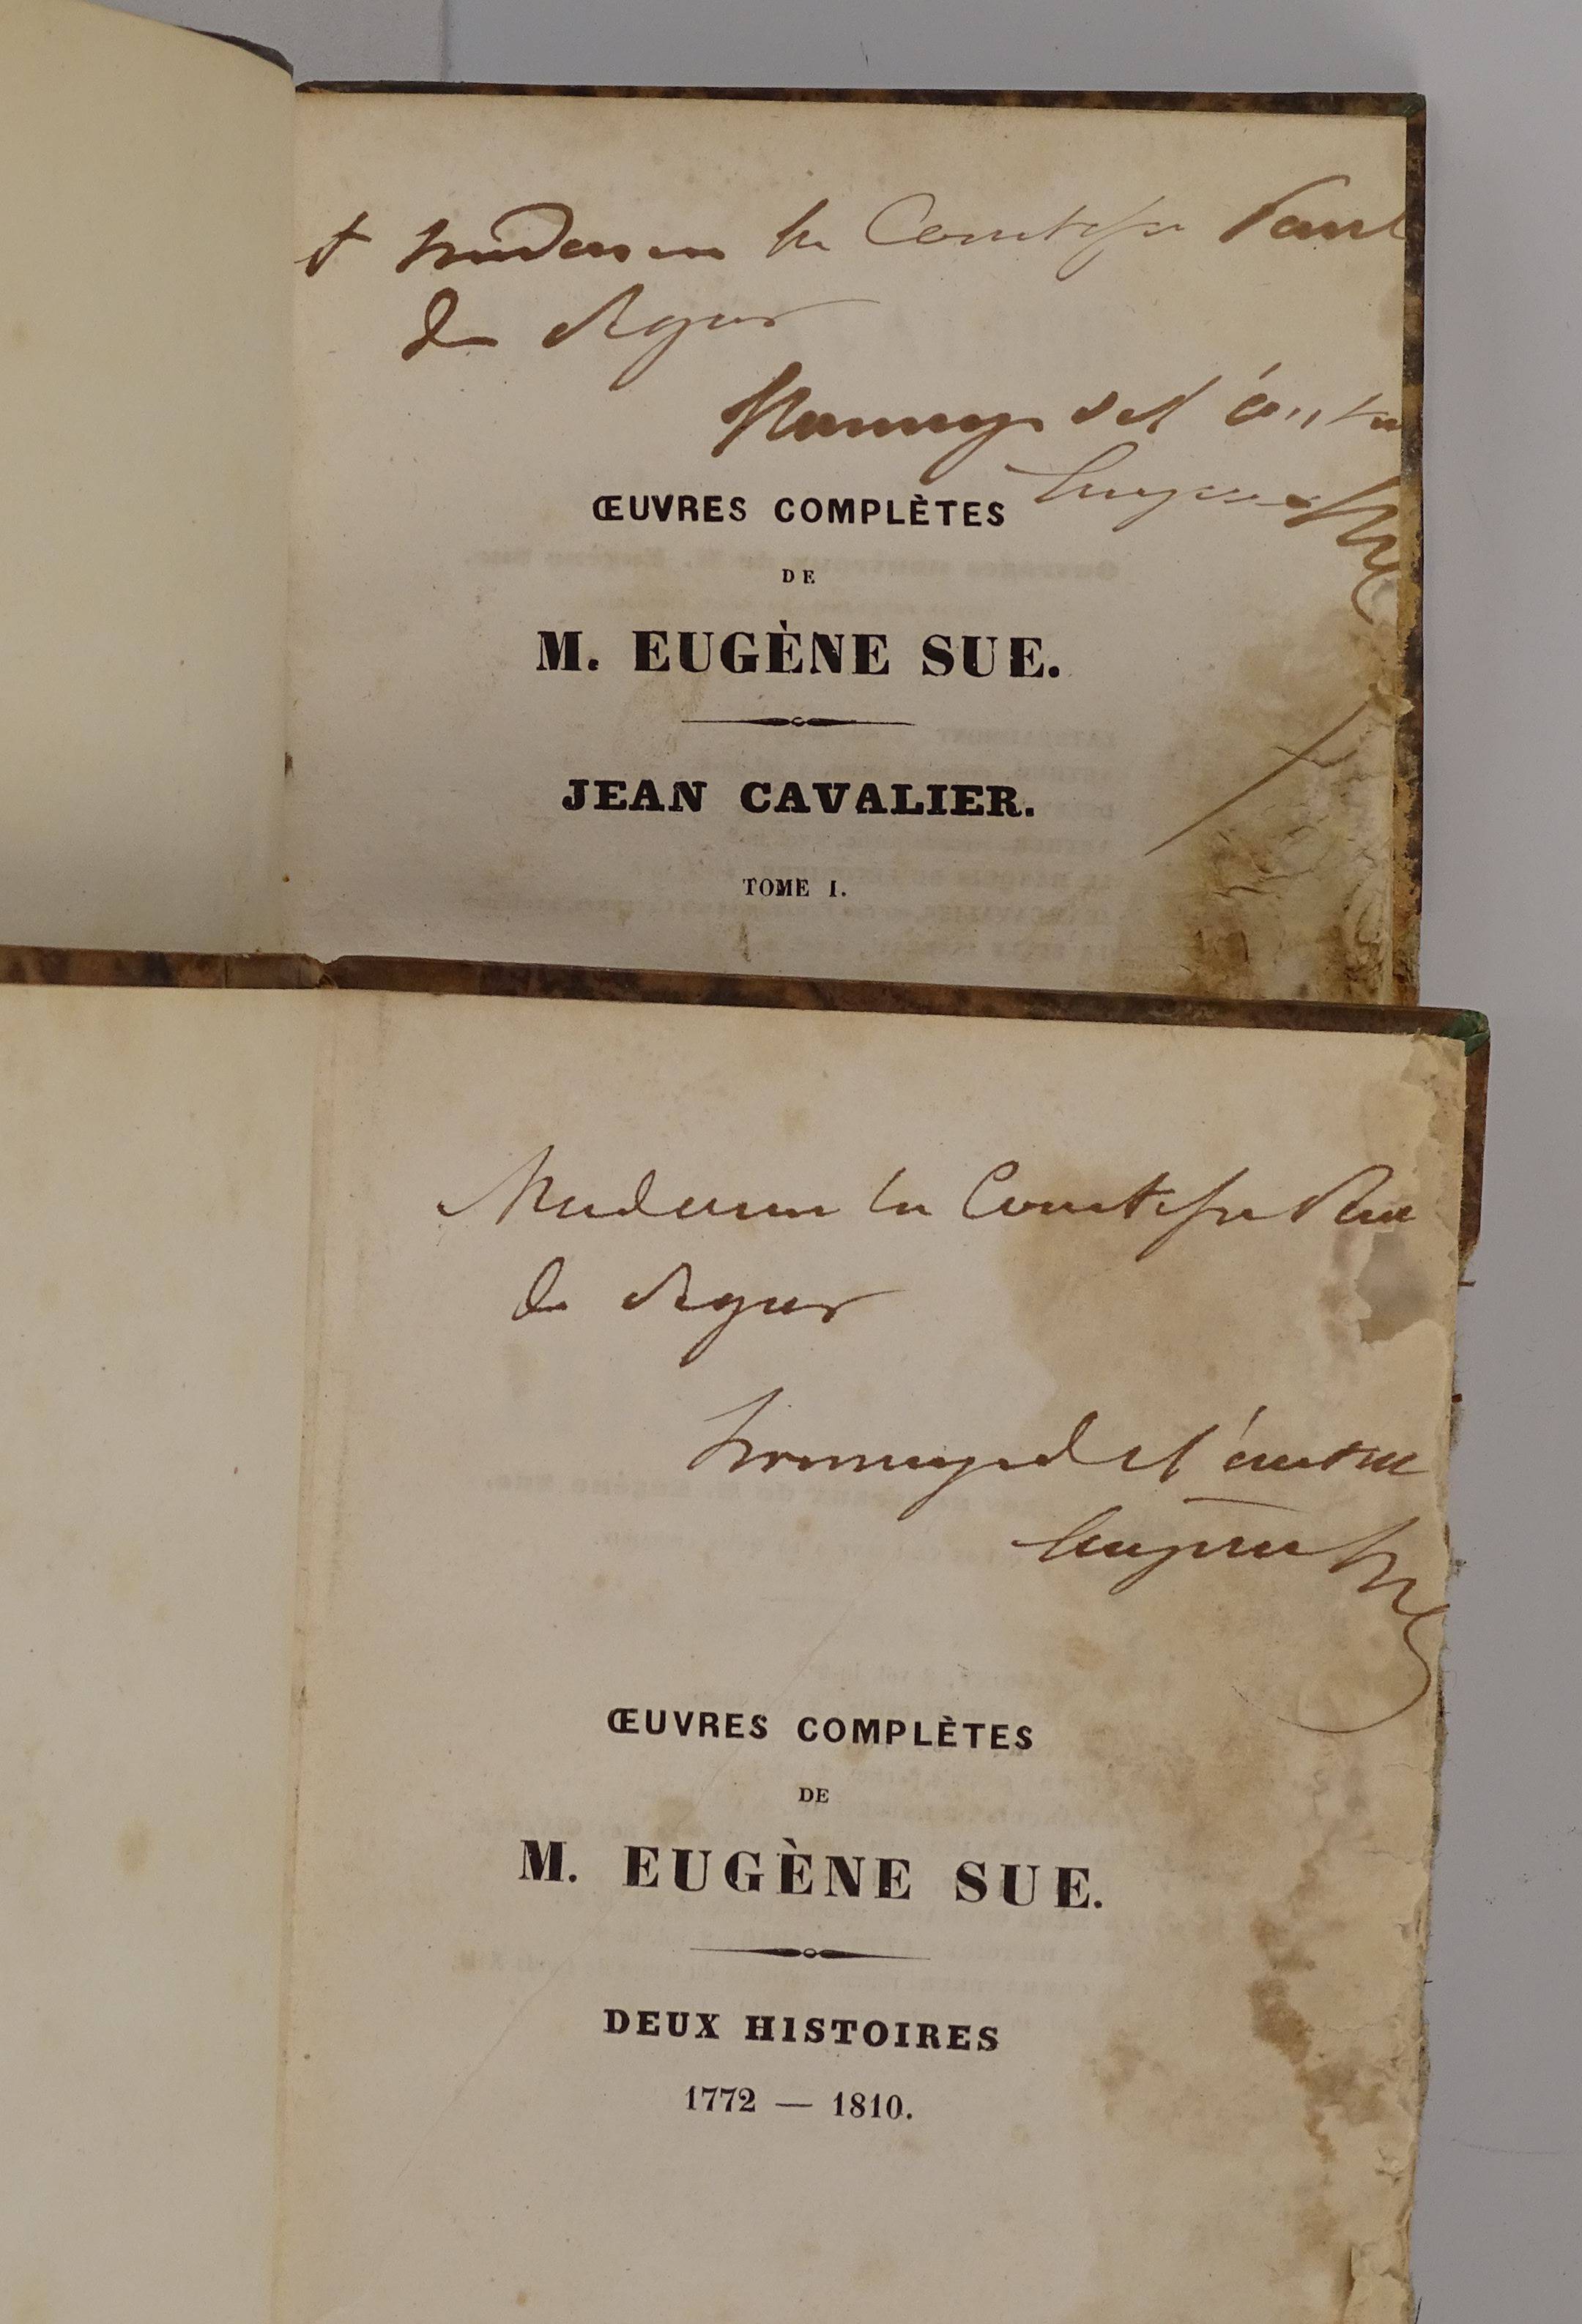 à madame la Comtesse Paul
de Segur
Hommage de l'auteur
Eugène Sue
ŒUVRES COMPLÈTES
DE
M. EUGÈNE SUE.
JEAN CAVALIER.
TOME I.
Madame la Comtesse Paul
de Segur
hommage de l'auteur
Eugène Sue
ŒUVRES COMPLÈTES
DE
M. EUGÈNE SUE.
DEUX HISTOIRES
1772 — 1810.